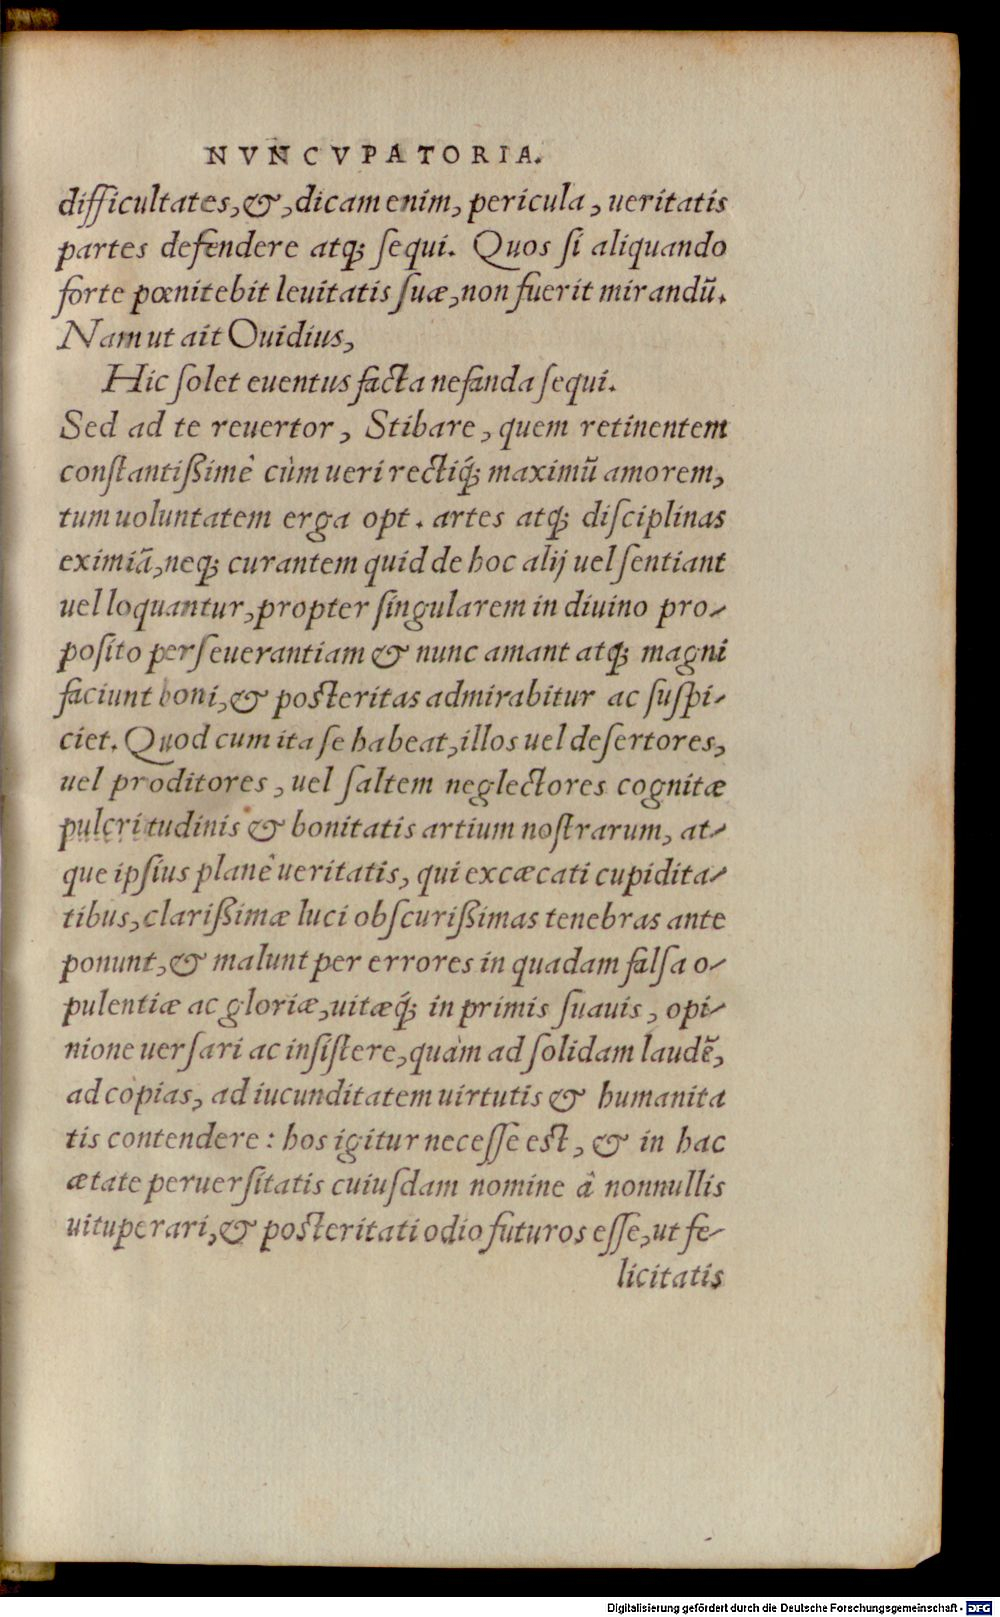 NVNCVPATORIA.
difficultates, &, dicam enim, pericula, ueritatis
partes defendere atq; sequi. Quos si aliquando
forte pœnitebit leuitatis suæ, non fuerit mirandū.
Nam ut ait Ouidius,
Hic solet euentus facta nefanda sequi.
Sed ad te reuertor, Stibare, quem retinentem
constantißimê cùm ueri rectiq́; maximū amorem,
tum uoluntatem erga opt. artes atq; disciplinas
eximiā, neq; curantem quid de hoc alij uel sentiant
uel loquantur, propter singularem in diuino pro-
posito perseuerantiam & nunc amant atq; magni
faciunt boni, & posteritas admirabitur ac suspi-
ciet. Quod cum ita se habeat, illos uel desertores,
uel proditores, uel saltem neglectores cognitæ
pulcritudinis & bonitatis artium nostrarum, at-
que ipsius planê ueritatis, qui excæcati cupidita-
tibus, clarißimæ luci obscurißimas tenebras ante
ponunt, & malunt per errores in quadam falsa o-
pulentiæ ac gloriæ, uitæq́; in primis suauis, opi-
nione uersari ac insistere, quàm ad solidam laudē,
ad còpias, ad iucunditatem uirtutis & humanita
tis contendere: hos igitur necesse est, & in hac
ætate peruersitatis cuiusdam nomine â nonnullis
uituperari, & posteritati odio futuros esse, ut fe-
licitatis
Digitalisierung gefördert durch die Deutsche Forschungsgemeinschaft - DFG